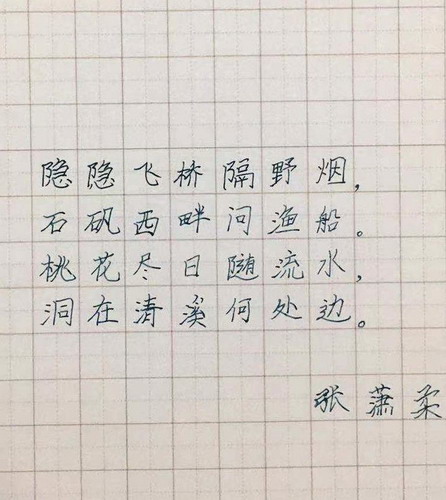 隐隐飞桥隔野烟，
石矶西畔问渔船。
桃花尽日随流水，
洞在清溪何处边。
张萧柔